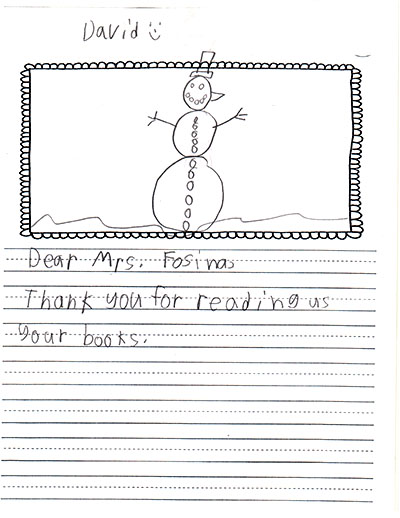 David
Dear Mrs. Fosina,
Thank you for reading us
your books.